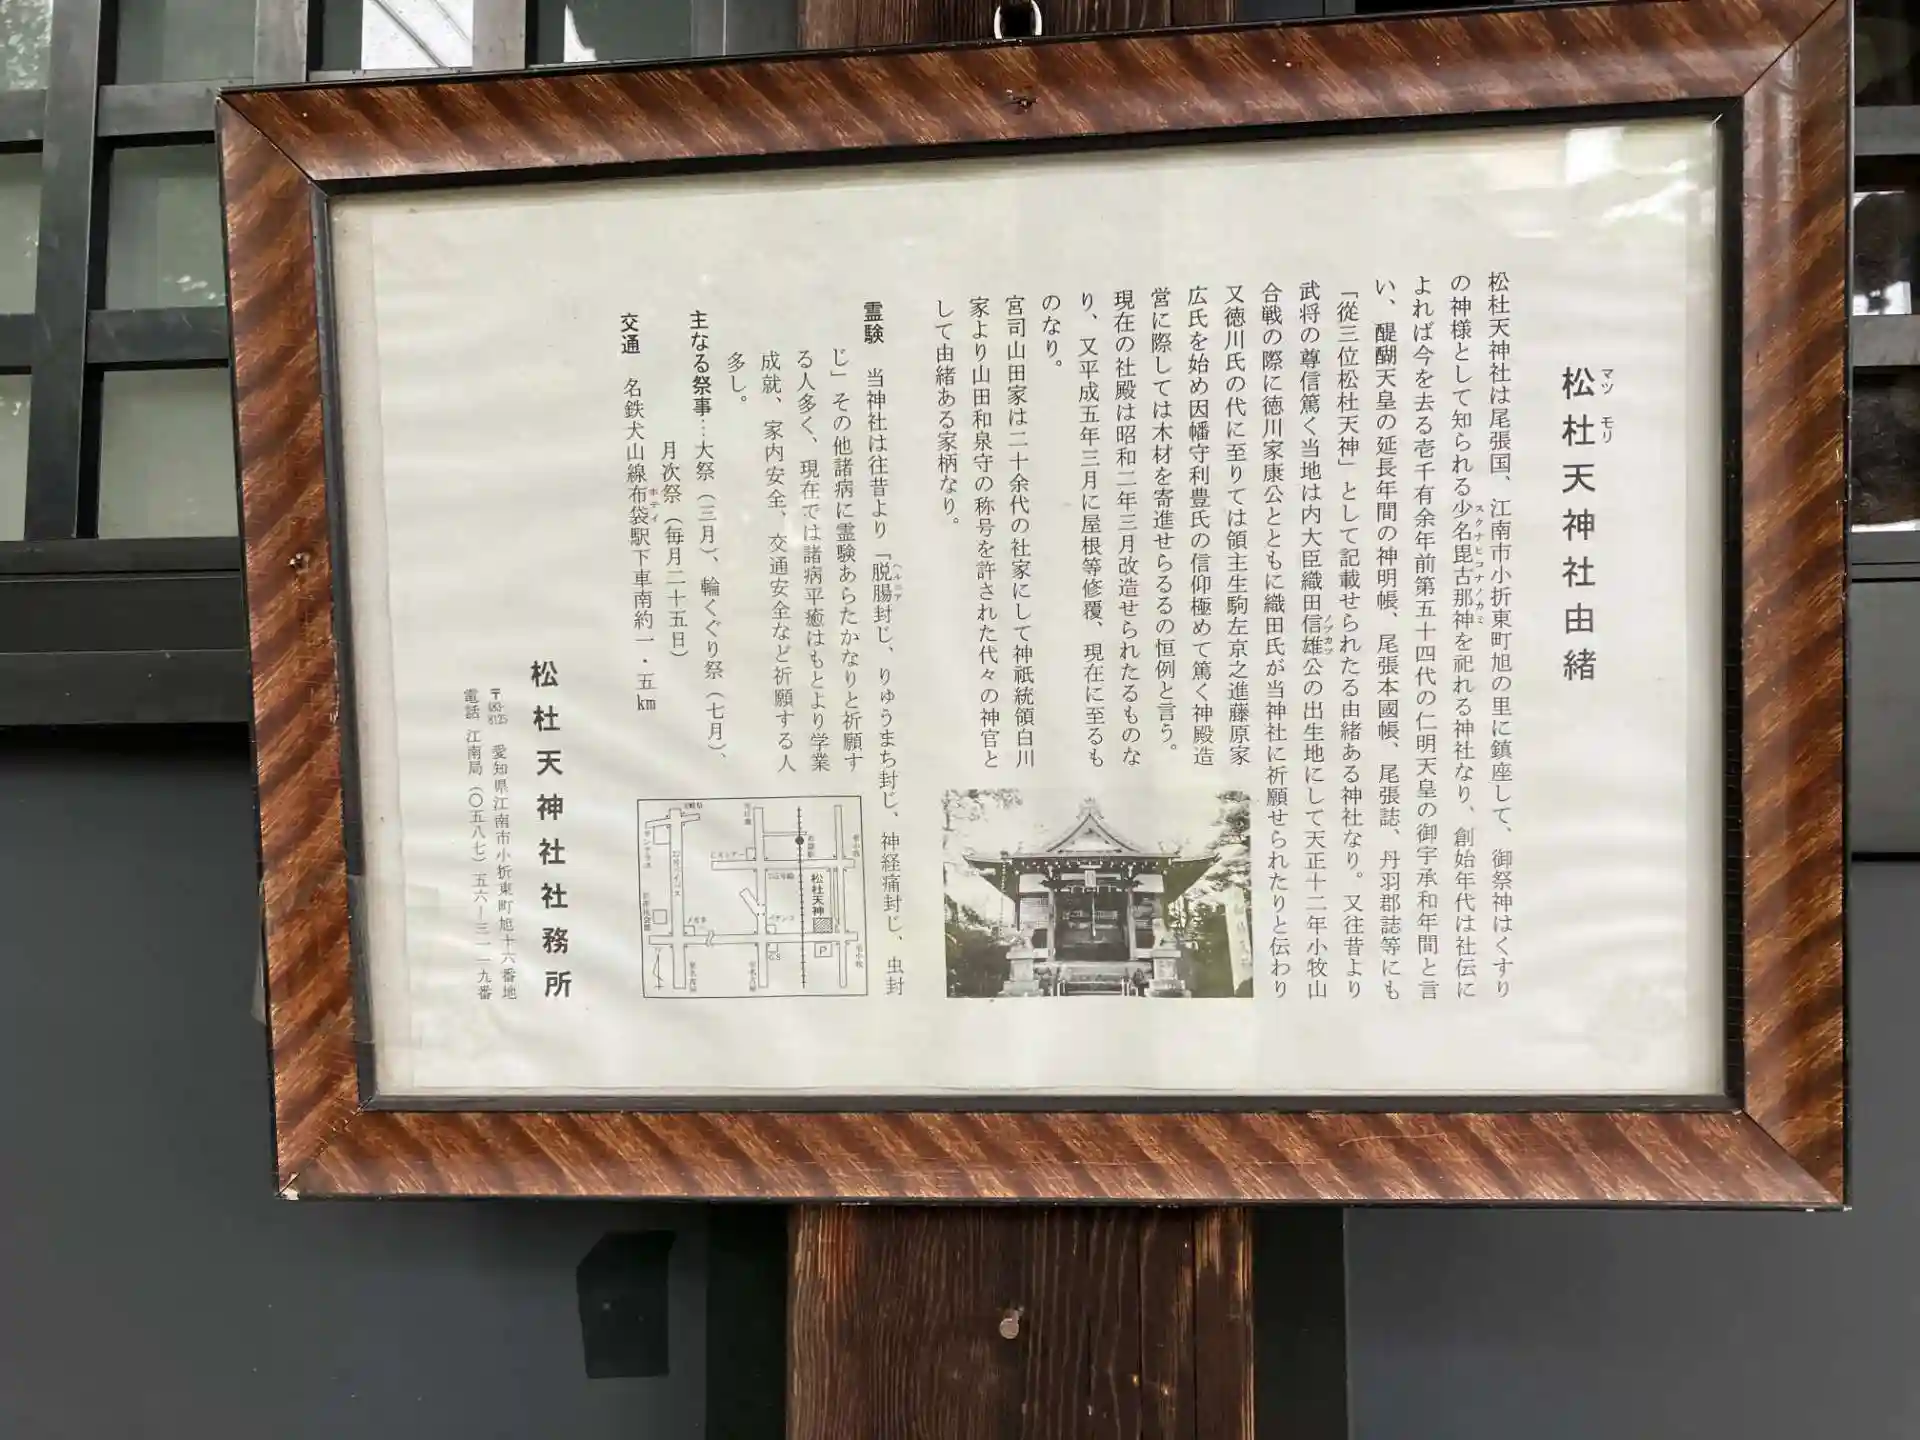 松杜天神社由緒
マツ モリ
松杜天神社は尾張国、江南市小折東町旭の里に鎮座して、御祭神はくすり
の神様として知られる少名毘古那神を祀れる神社なり、創始年代は社伝に
スクナヒコナノカミ
よれば今を去る壱千有余年前第五十四代の仁明天皇の御宇承和年間と言
い、醍醐天皇の延長年間の神明帳、尾張本國帳、尾張誌、丹羽郡誌等にも
「從三位松杜天神」として記載せられたる由緒ある神社なり。又往昔より
武将の尊信篤く当地は内大臣織田信雄公の出生地にして天正十二年小牧山
ノブカツ
合戦の際に徳川家康公とともに織田氏が当神社に祈願せられたりと伝わり
又徳川氏の代に至りては領主生駒左京之進藤原家
広氏を始め因幡守利豊氏の信仰極めて篤く神殿造
営に際しては木材を寄進せらるるの恒例と言う。
現在の社殿は昭和二年三月改造せられたるものな
り、又平成五年三月に屋根等修覆、現在に至るも
のなり。
宮司山田家は二十余代の社家にして神祇統領白川
家より山田和泉守の称号を許された代々の神官と
して由緒ある家柄なり。
霊験 当神社は往昔より「脱腸封じ、りゅうまち封じ、神経痛封じ、虫封
ヘルニア
じ」その他諸病に霊験あらたかなりと祈願す
る人多く、現在では諸病平癒はもとより学業
成就、家内安全、交通安全など祈願する人
多し。
主なる祭事…大祭（三月）、輪くぐり祭（七月）、
月次祭（毎月二十五日）
交通 名鉄犬山線布袋駅下車南約一・五km
ホテイ
松杜天神
P
G.S
至小牧
松杜天神社社務所
〒483-8125 愛知県江南市小折東町旭十六番地
電話 江南局（〇五八七）五六ー三一一九番